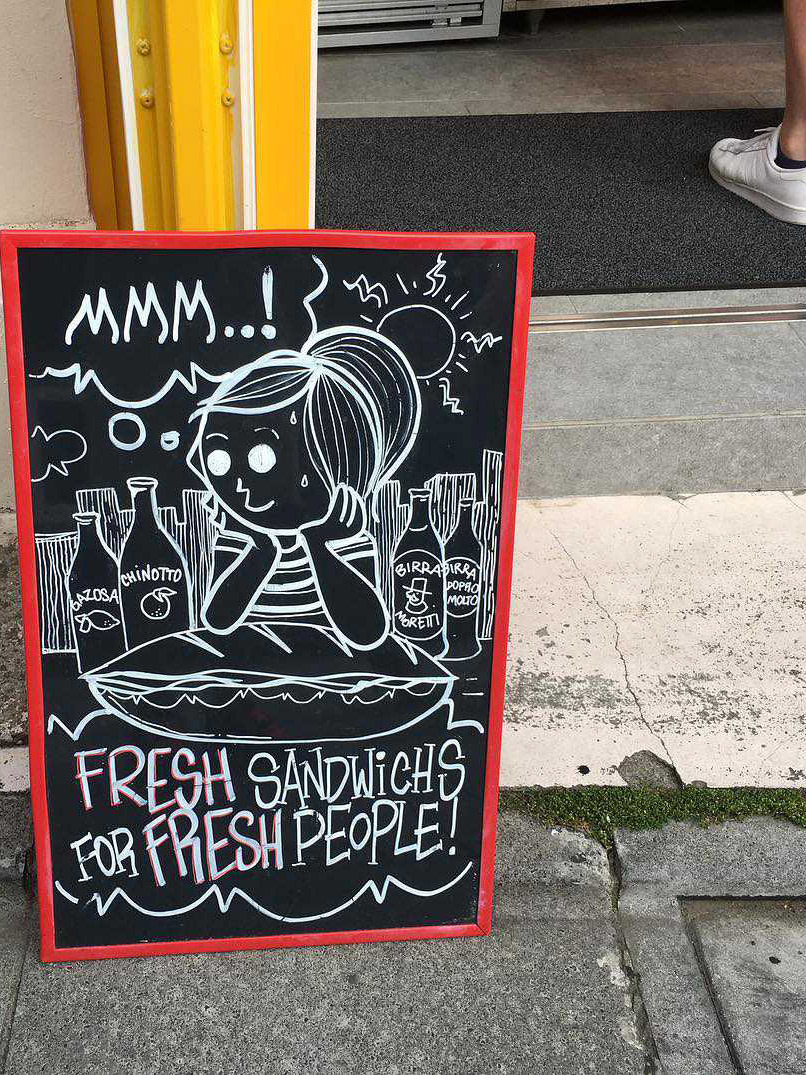 MMM...!
GAZOSA
CHINOTTO
BIRRA
MORETTI
BIRRA
DOPPIO
MOLTO
FRESH SANDWiCHS
FOR FRESH PEOPLE!